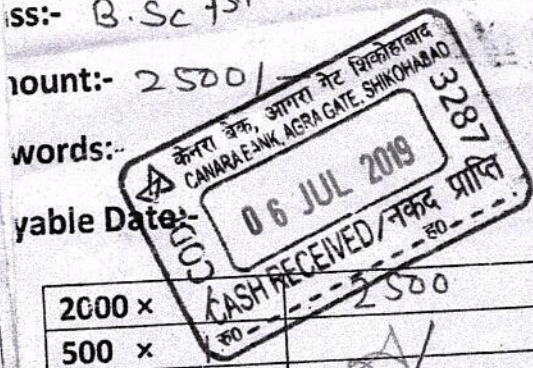 ss:- B.Sc 1st
nount:- 2500/-
words:-
yable Date:-
केनरा बैंक, आगरा गेट शिकोहाबाद
CANARA BANK, AGRA GATE. SHIKOHABAD
3287
06 JUL 2019
CODE
CASH RECEIVED/नकद प्राप्ति
रु0 ह0
2000 × 2500
500 ×